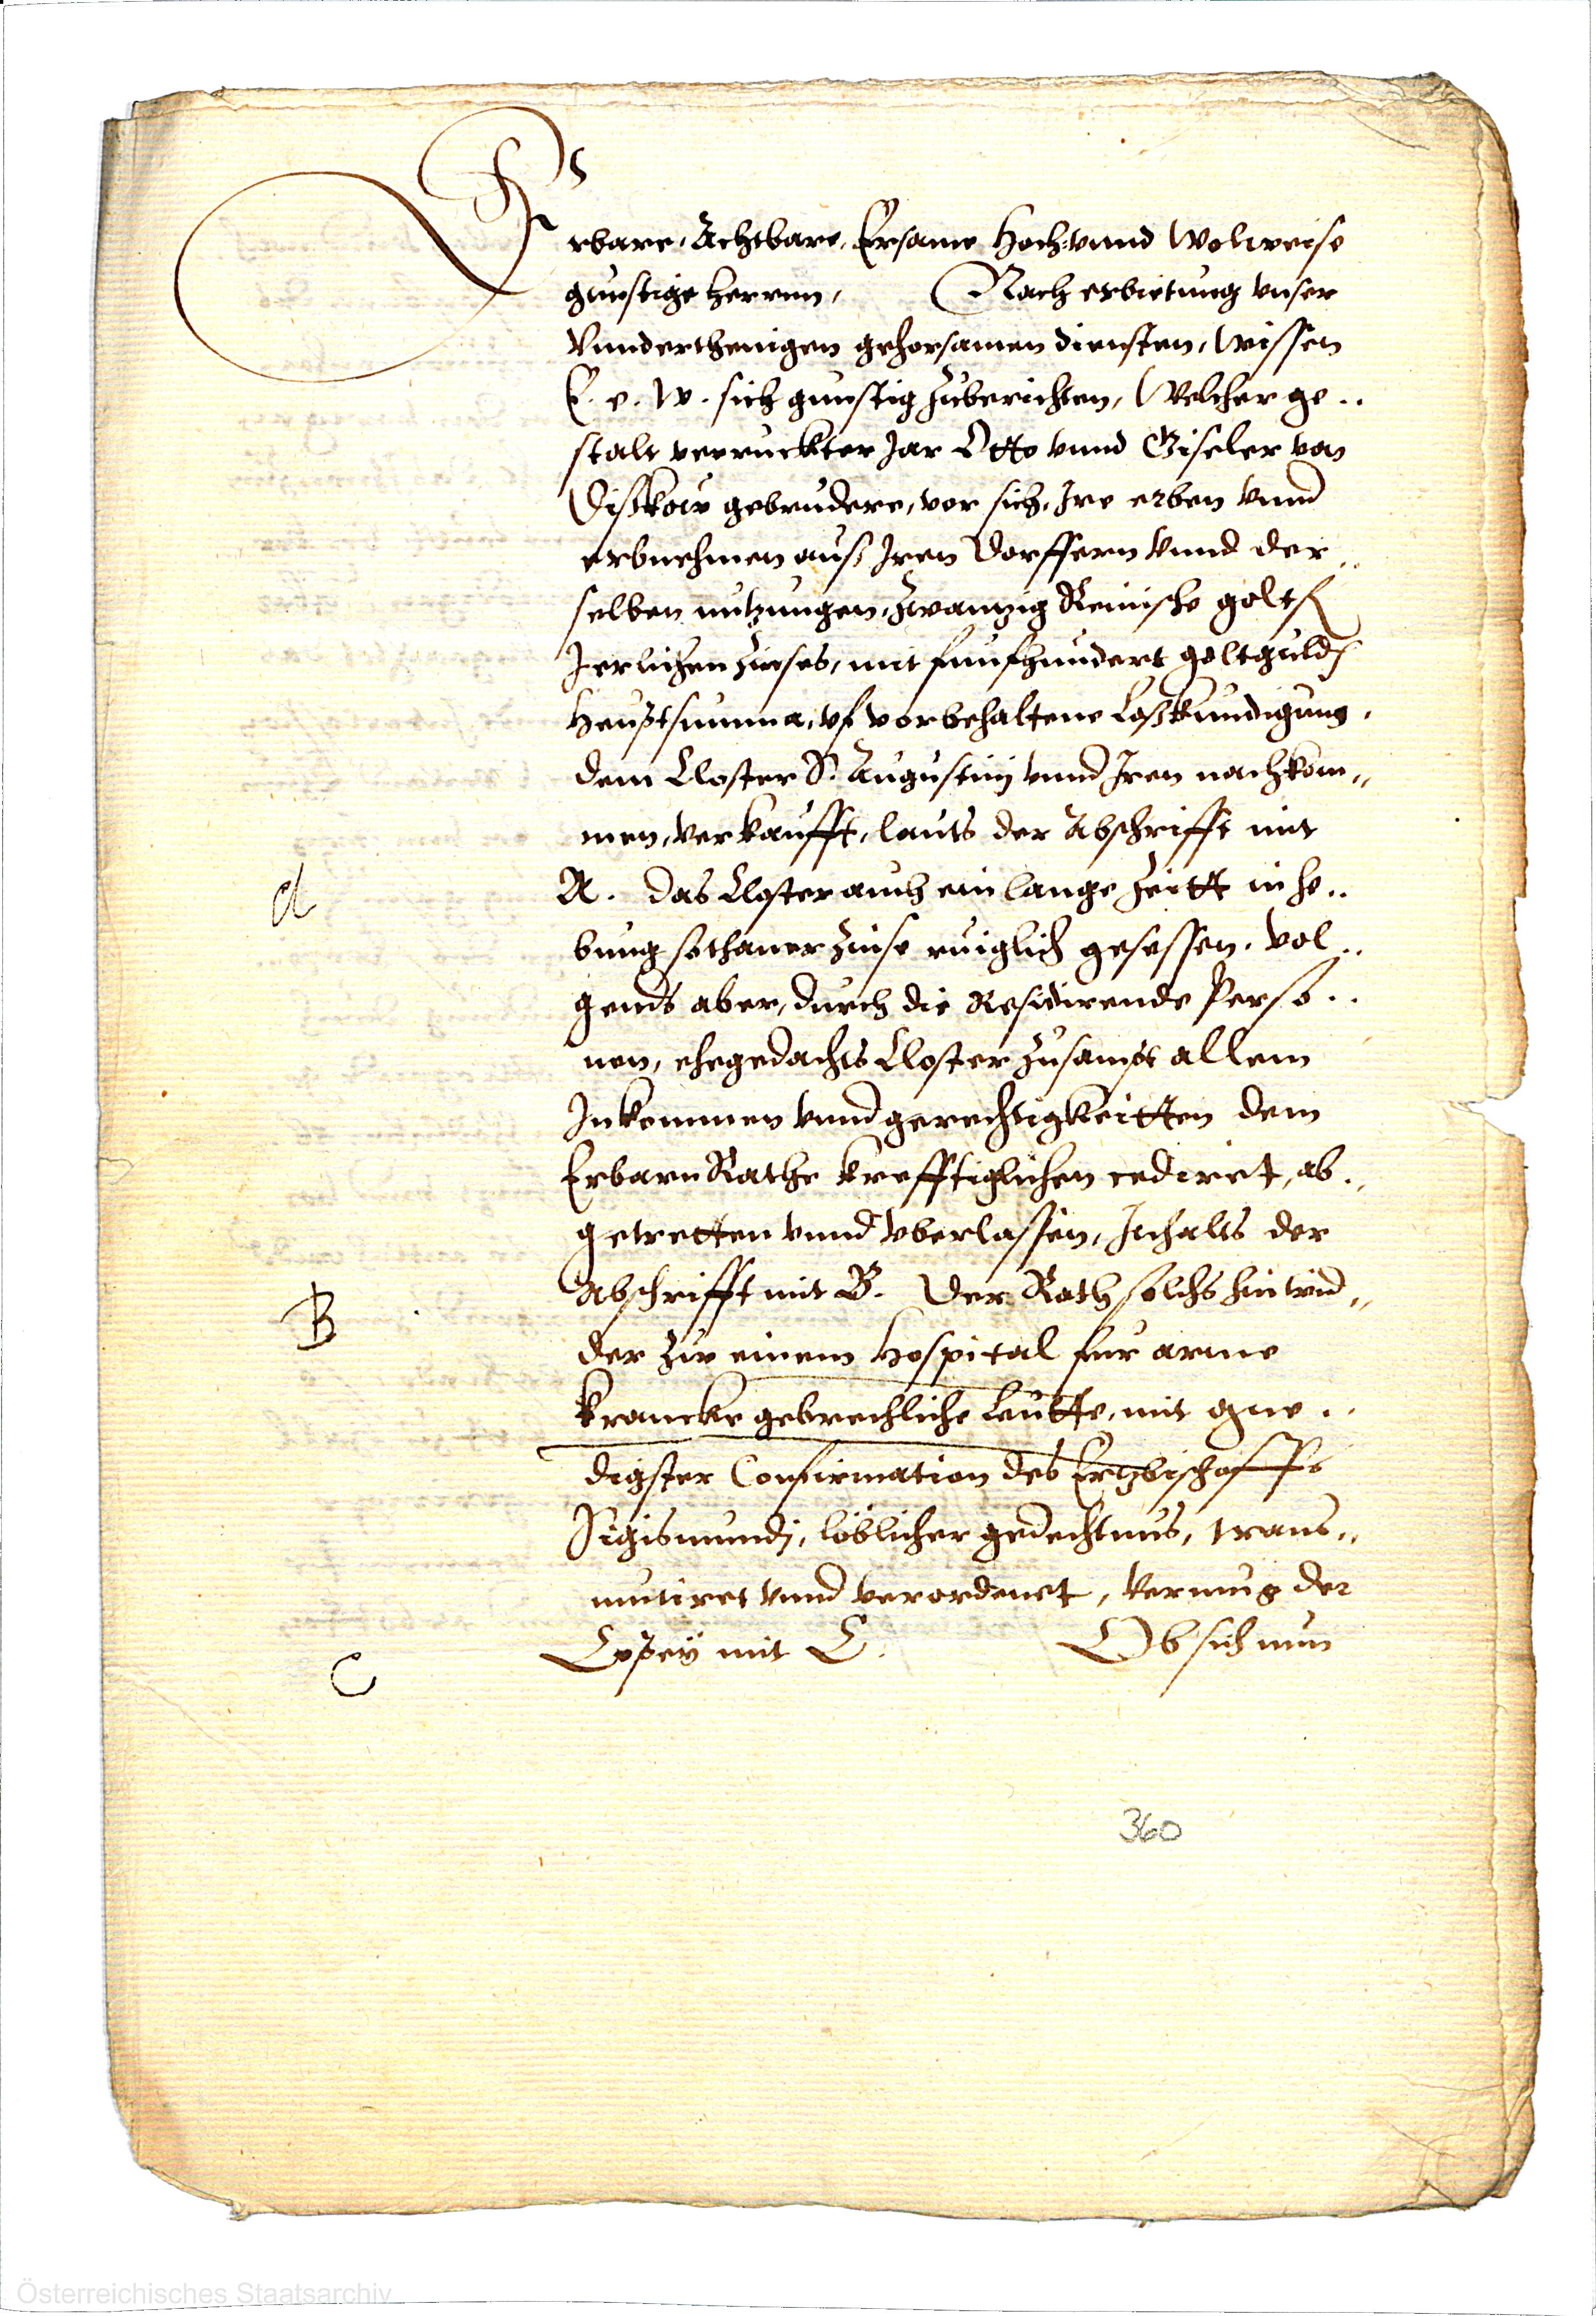 Erbare, Achtbare, Ersame Hoch: vnnd Wolweise
gunstige herrenn, Nach erbietung vnser
Vnnderthenigen gehorsamen diensten, Wissen
E. e. W. sich gunstig zuberichten, Welcher ge..
stalt verruckter Jar Otto vnnd Giseler von
Dißkow gebrudere, vor sich, Ire erben vnnd
erbnehmen auß Iren Dorffern vnnd der..
selben nutzungen, Zwanzig Reinische golt fl
Jerlichen Zinses, mit funfhundert goltguld
Heuptsumma, vf vorbehaltene Loßkundigung,
dem Closter S. Augustinj vnnd Iren nachkom,,
men, verkaufft, lauts der Abschrifft mit
A
A. Das Closter auch ein lange Zeitt in he..
bung sothaner Zinse ruiglich gesessen. Vol..
gends aber, durch die Residirende Perso..
nen, ehegedachts Closter Zusampt allem
Inkommen vnnd gerechtigkeitten dem
Erbarn Rathe krefftiglichen cediret, ab..
getretten vnnd vberlassen, Inhalts der
B
Abschrifft mit B. Der Rath solchs hinwid,,
der Zue einem Hospital fur arme
krancke gebrechliche Leutte, mit gne..
digster Confirmation des Ertzbischoffs
Sigismundj, löblicher gedechtnus, trans,,
mutiret vnnd verordenet, Vermug der
C
Copey mit C. Ob sich nun
360
Österreichisches Staatsarchiv